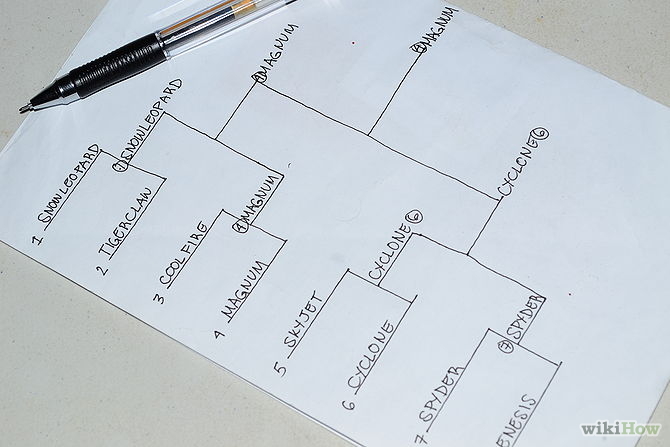 1 SNOWLEOPARD
2 TIGERCLAW
3 COOLFIRE
4 MAGNUM
5 SKYJET
6 CYCLONE
7 SPYDER
ENESIS
① SNOWLEOPARD
④ MAGNUM
CYCLONE ⑥
⑦ SPYDER
④ MAGNUM
CYCLONE ⑥
④ MAGNUM
wikiHow